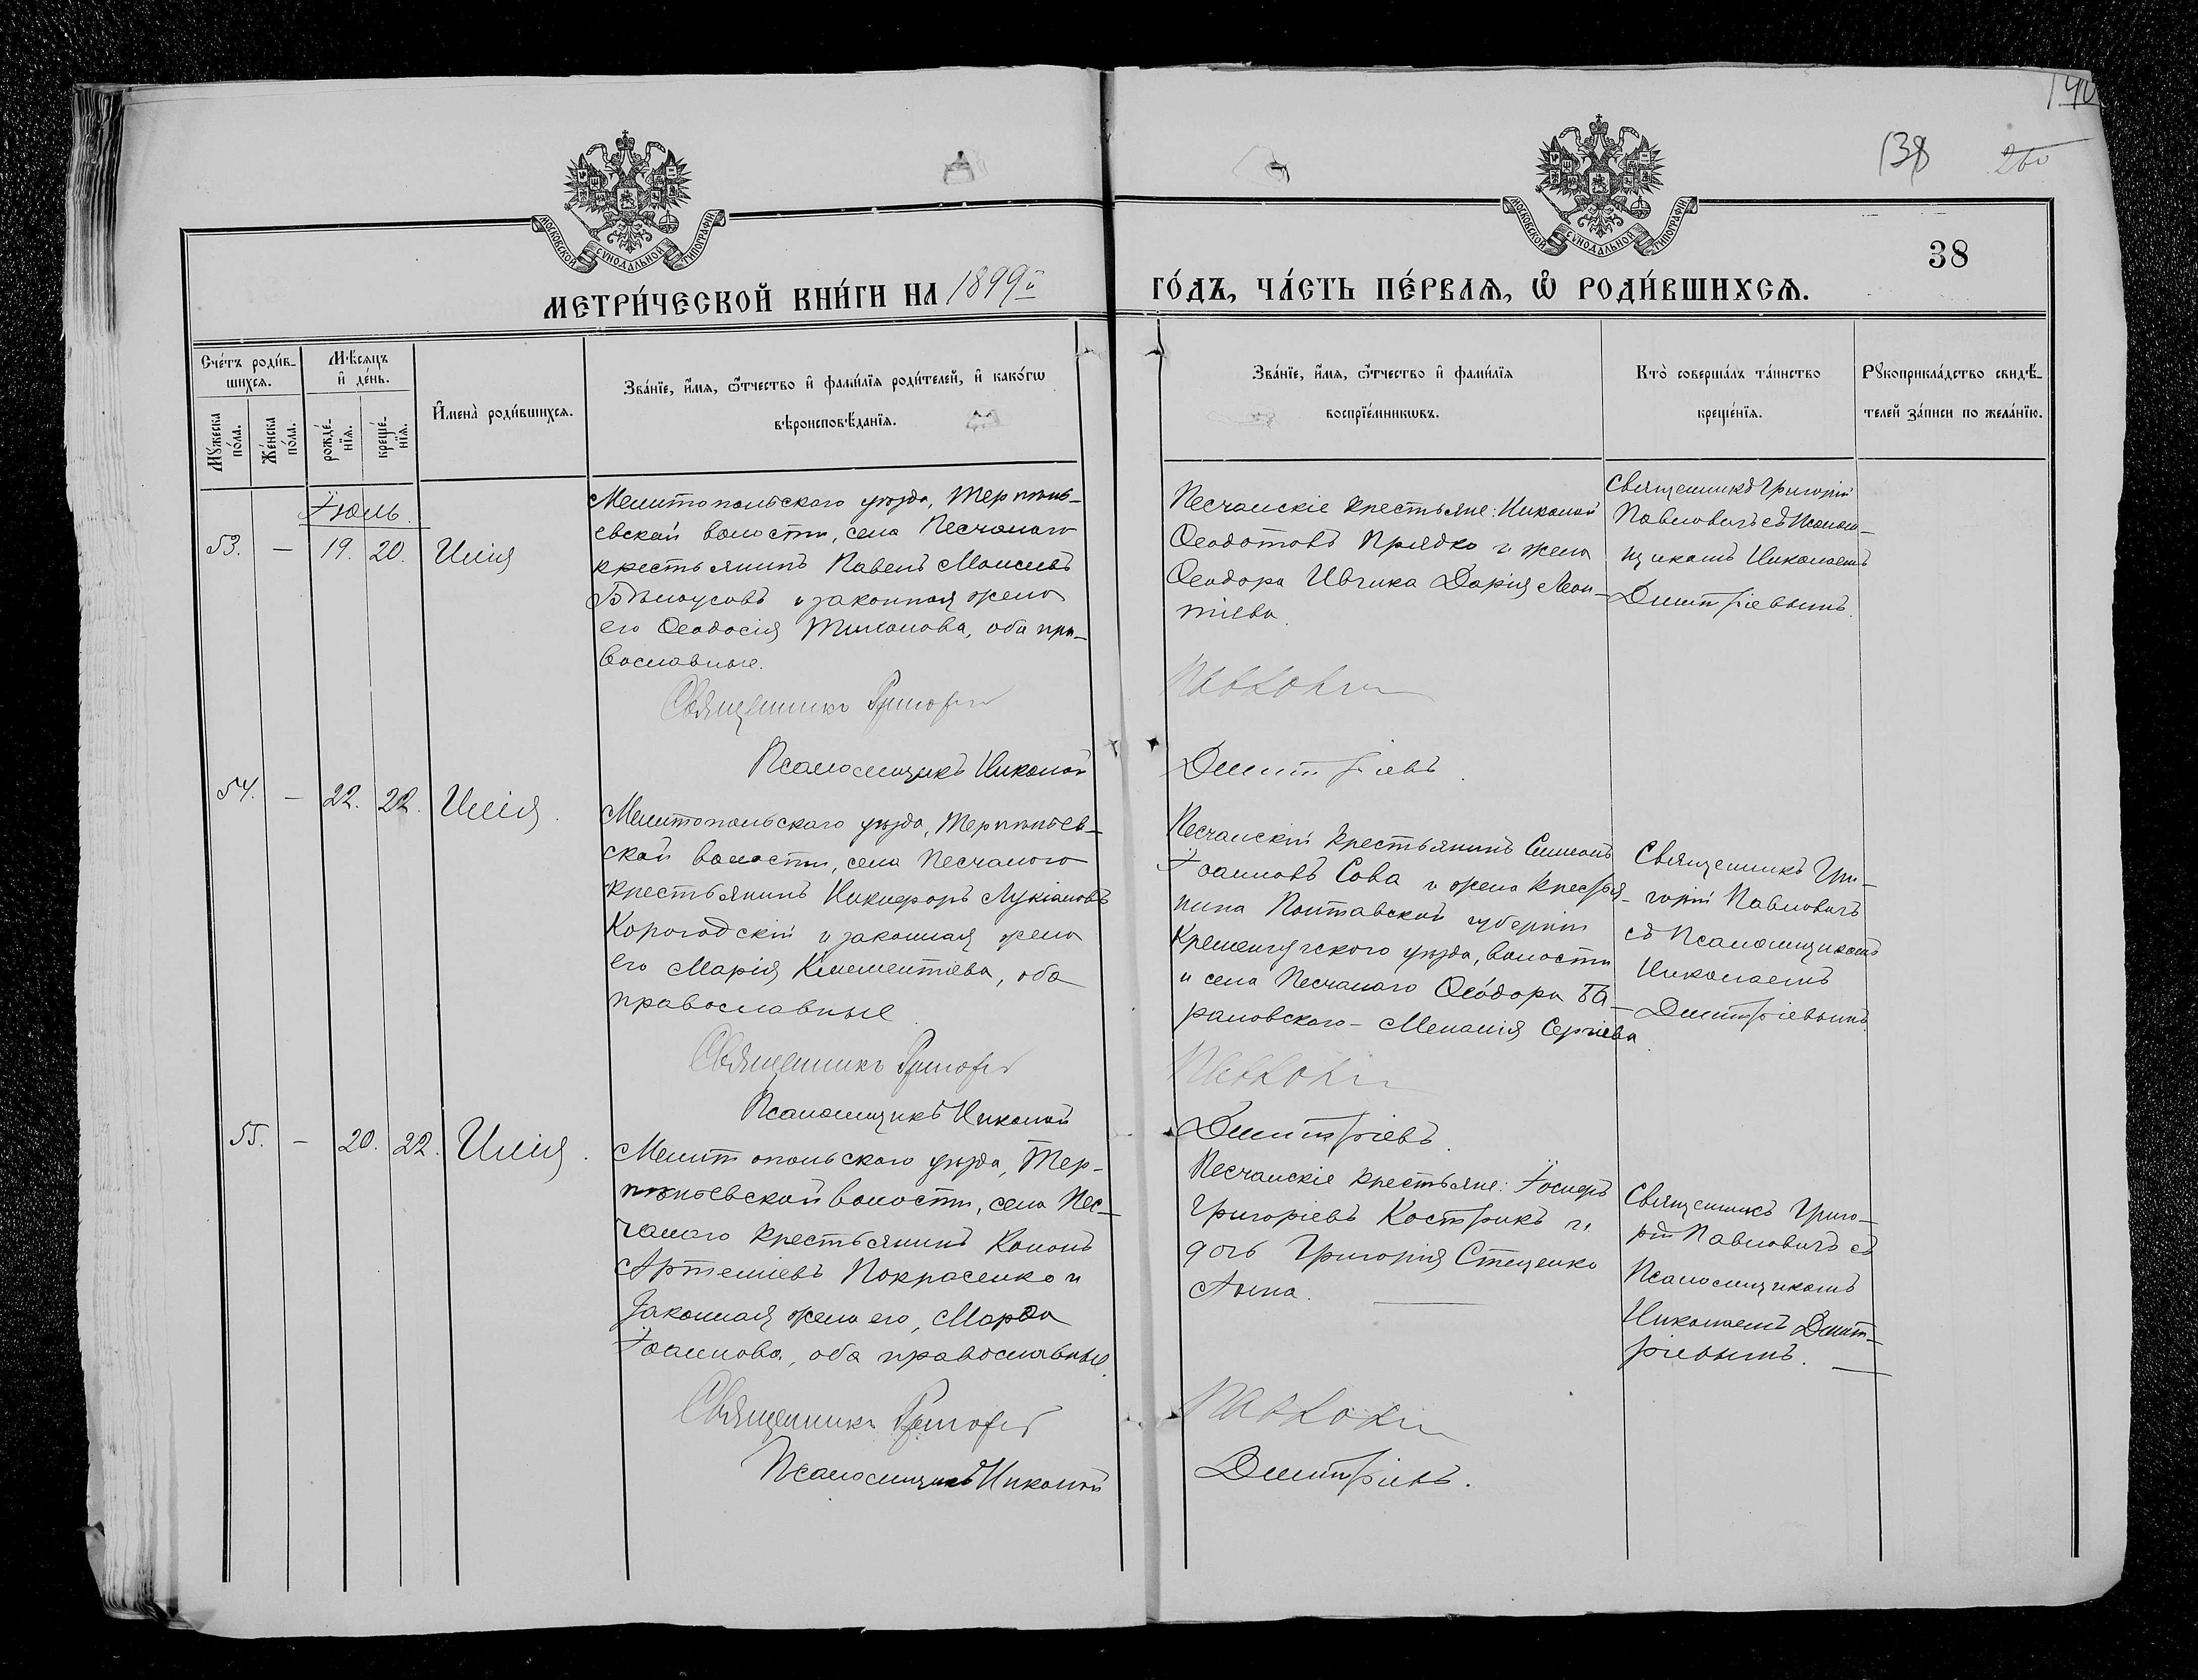 140
138
260
МОСКОВСКОЙ СѴНОДАЛЬНОЙ ТИПОГРАФІИ
МОСКОВСКОЙ СѴНОДАЛЬНОЙ ТИПОГРАФІИ
38
МЕТРИ́ЧЕСКОЙ КНИ́ГИ НА 1899й
ГО́ДЪ, ЧА́СТЬ ПЕ́РВАѦ, Ѡ҆ РОДИ́ВШИХСѦ.
Сче́тъ роди́в-
шихсѧ.
Мѣ́сѧцъ
и҆ де́нь.
Мꙋ́жеска по́ла.
Же́нска по́ла.
рожде́-
нїѧ.
креще́-
нїѧ.
И҆мена̀ роди́вшихсѧ.
Зва́нїе, и҆́мѧ, ѻ҆́тчество и҆ фами́лїѧ роди́телей, и҆ како́гѡ
вѣроисповѣ́данїѧ.
Зва́нїе, и҆́мѧ, ѻ҆́тчество и҆ фами́лїѧ
воспрїе́мникѡвъ.
Кто̀ соверша́лъ та́инство
креще́нїѧ.
Рꙋкоприкла́дство свидѣ́-
телей за́писи по жела́нїю.
Іюль.
53. — 19. 20. Илія
Мелитопольскаго уѣзда, Терпѣнь-
евской волости, села Песчанаго
крестьянинъ Павелъ Моисеевъ
Бѣлоусовъ и законная жена
его Ѳеодосія Тихонова, оба пра-
вославные.
Священникъ Григорій
Псаломщикъ Николай
Песчанскіе крестьяне: Николай
Ѳеодотовъ Прядко и жена
Ѳеодора Ивчика Дарія Леон-
тіева.
Павловичъ
Димитріевъ.
Священникъ Григорій
Павловичъ съ Псалом-
щикомъ Николаемъ
Димитріевымъ.
54. — 22. 22. Илія.
Мелитопольскаго уѣзда, Терпѣньев-
ской волости, села Песчанаго
крестьянинъ Никифоръ Лукіановъ
Корогодскій и законная жена
его Марія Климентіева, оба
православные.
Священникъ Григорій
Псаломщикъ Николай
Песчанскій крестьянинъ Симеонъ
Іоанновъ Сова и жена крестья-
нина Полтавской губерніи
Кременчугского уѣзда, волости
и села Песчанаго Ѳеодора Ба-
рановскаго – Меланія Сергіева.
Павловичъ
Димитріевъ.
Священникъ Гри-
горій Павловичъ
съ Псаломщикомъ
Николаемъ
Димитріевымъ.
55. — 20. 22. Илія.
Мелитопольскаго уѣзда, Тер-
пѣньевской волости, села Пес-
чанаго крестьянинъ Кононъ
Артемиевъ Покрасенко и
законная жена его, Марѳа
Іоаннова, оба православные.
Священникъ Григорій
Псаломщикъ Николай
Песчанскіе крестьяне: Іосифъ
Григоріевъ Кострикъ и
дочь Григорія Стеценко
Анна.
Павловичъ
Димитріевъ.
Священникъ Григо-
рій Павловичъ съ
Псаломщикомъ
Николаемъ Димит-
ріевымъ.